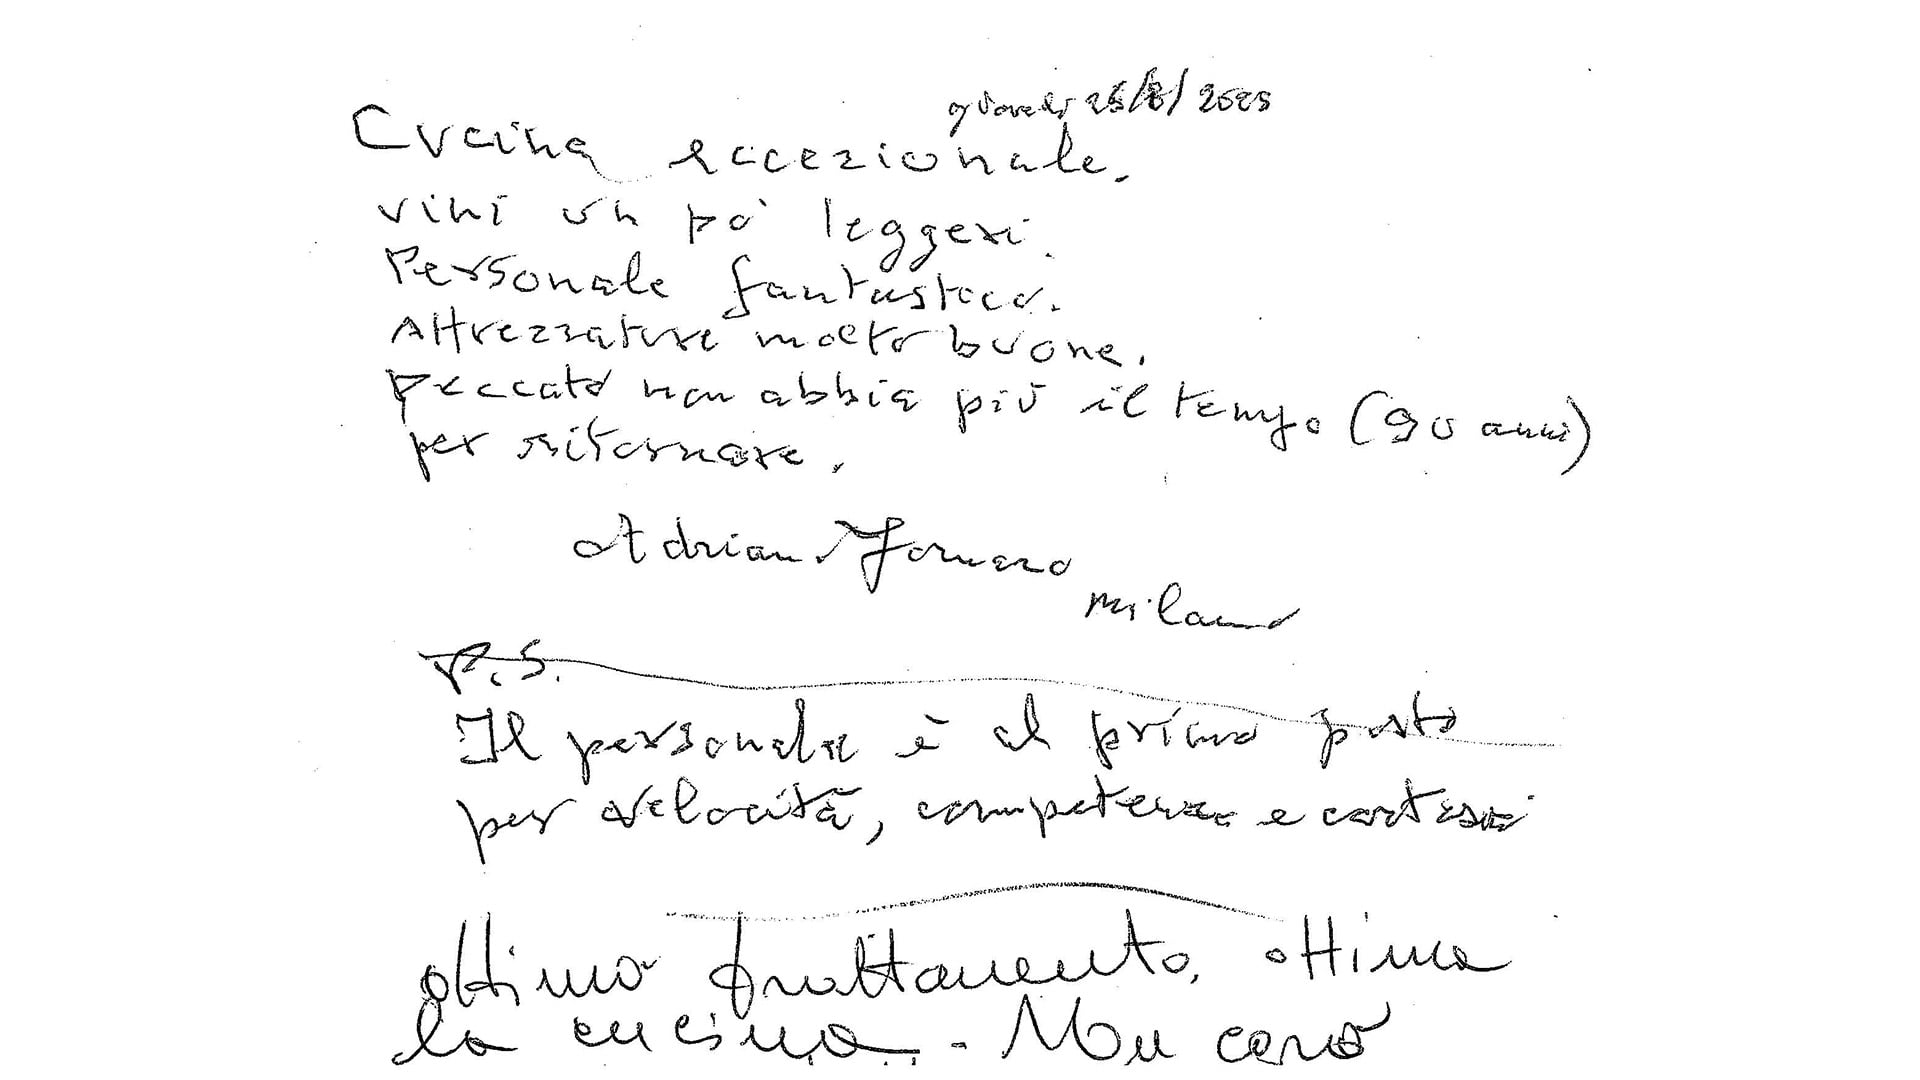 giovedì 26/6/2025
Cucina eccezionale.
vini un po' leggeri.
Personale fantastico.
Attrezzature molto buone.
peccato non abbia più il tempo (90 anni)
per ritornare.
Adriano Fornaro
Milano
P.S.
Il personale è al primo posto
per velocità, competenza e cortesia
ottimo trattamento, ottima
la cucina. - Mu